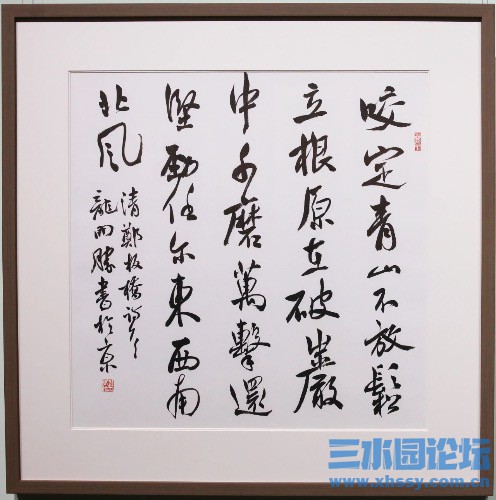 咬定青山不放鬆
立根原在破巖
中千磨萬擊還
堅勁任尔東西南
北風
清鄭板橋詩
龍開勝書於京
三水园论坛
www.xhssy.com.cn